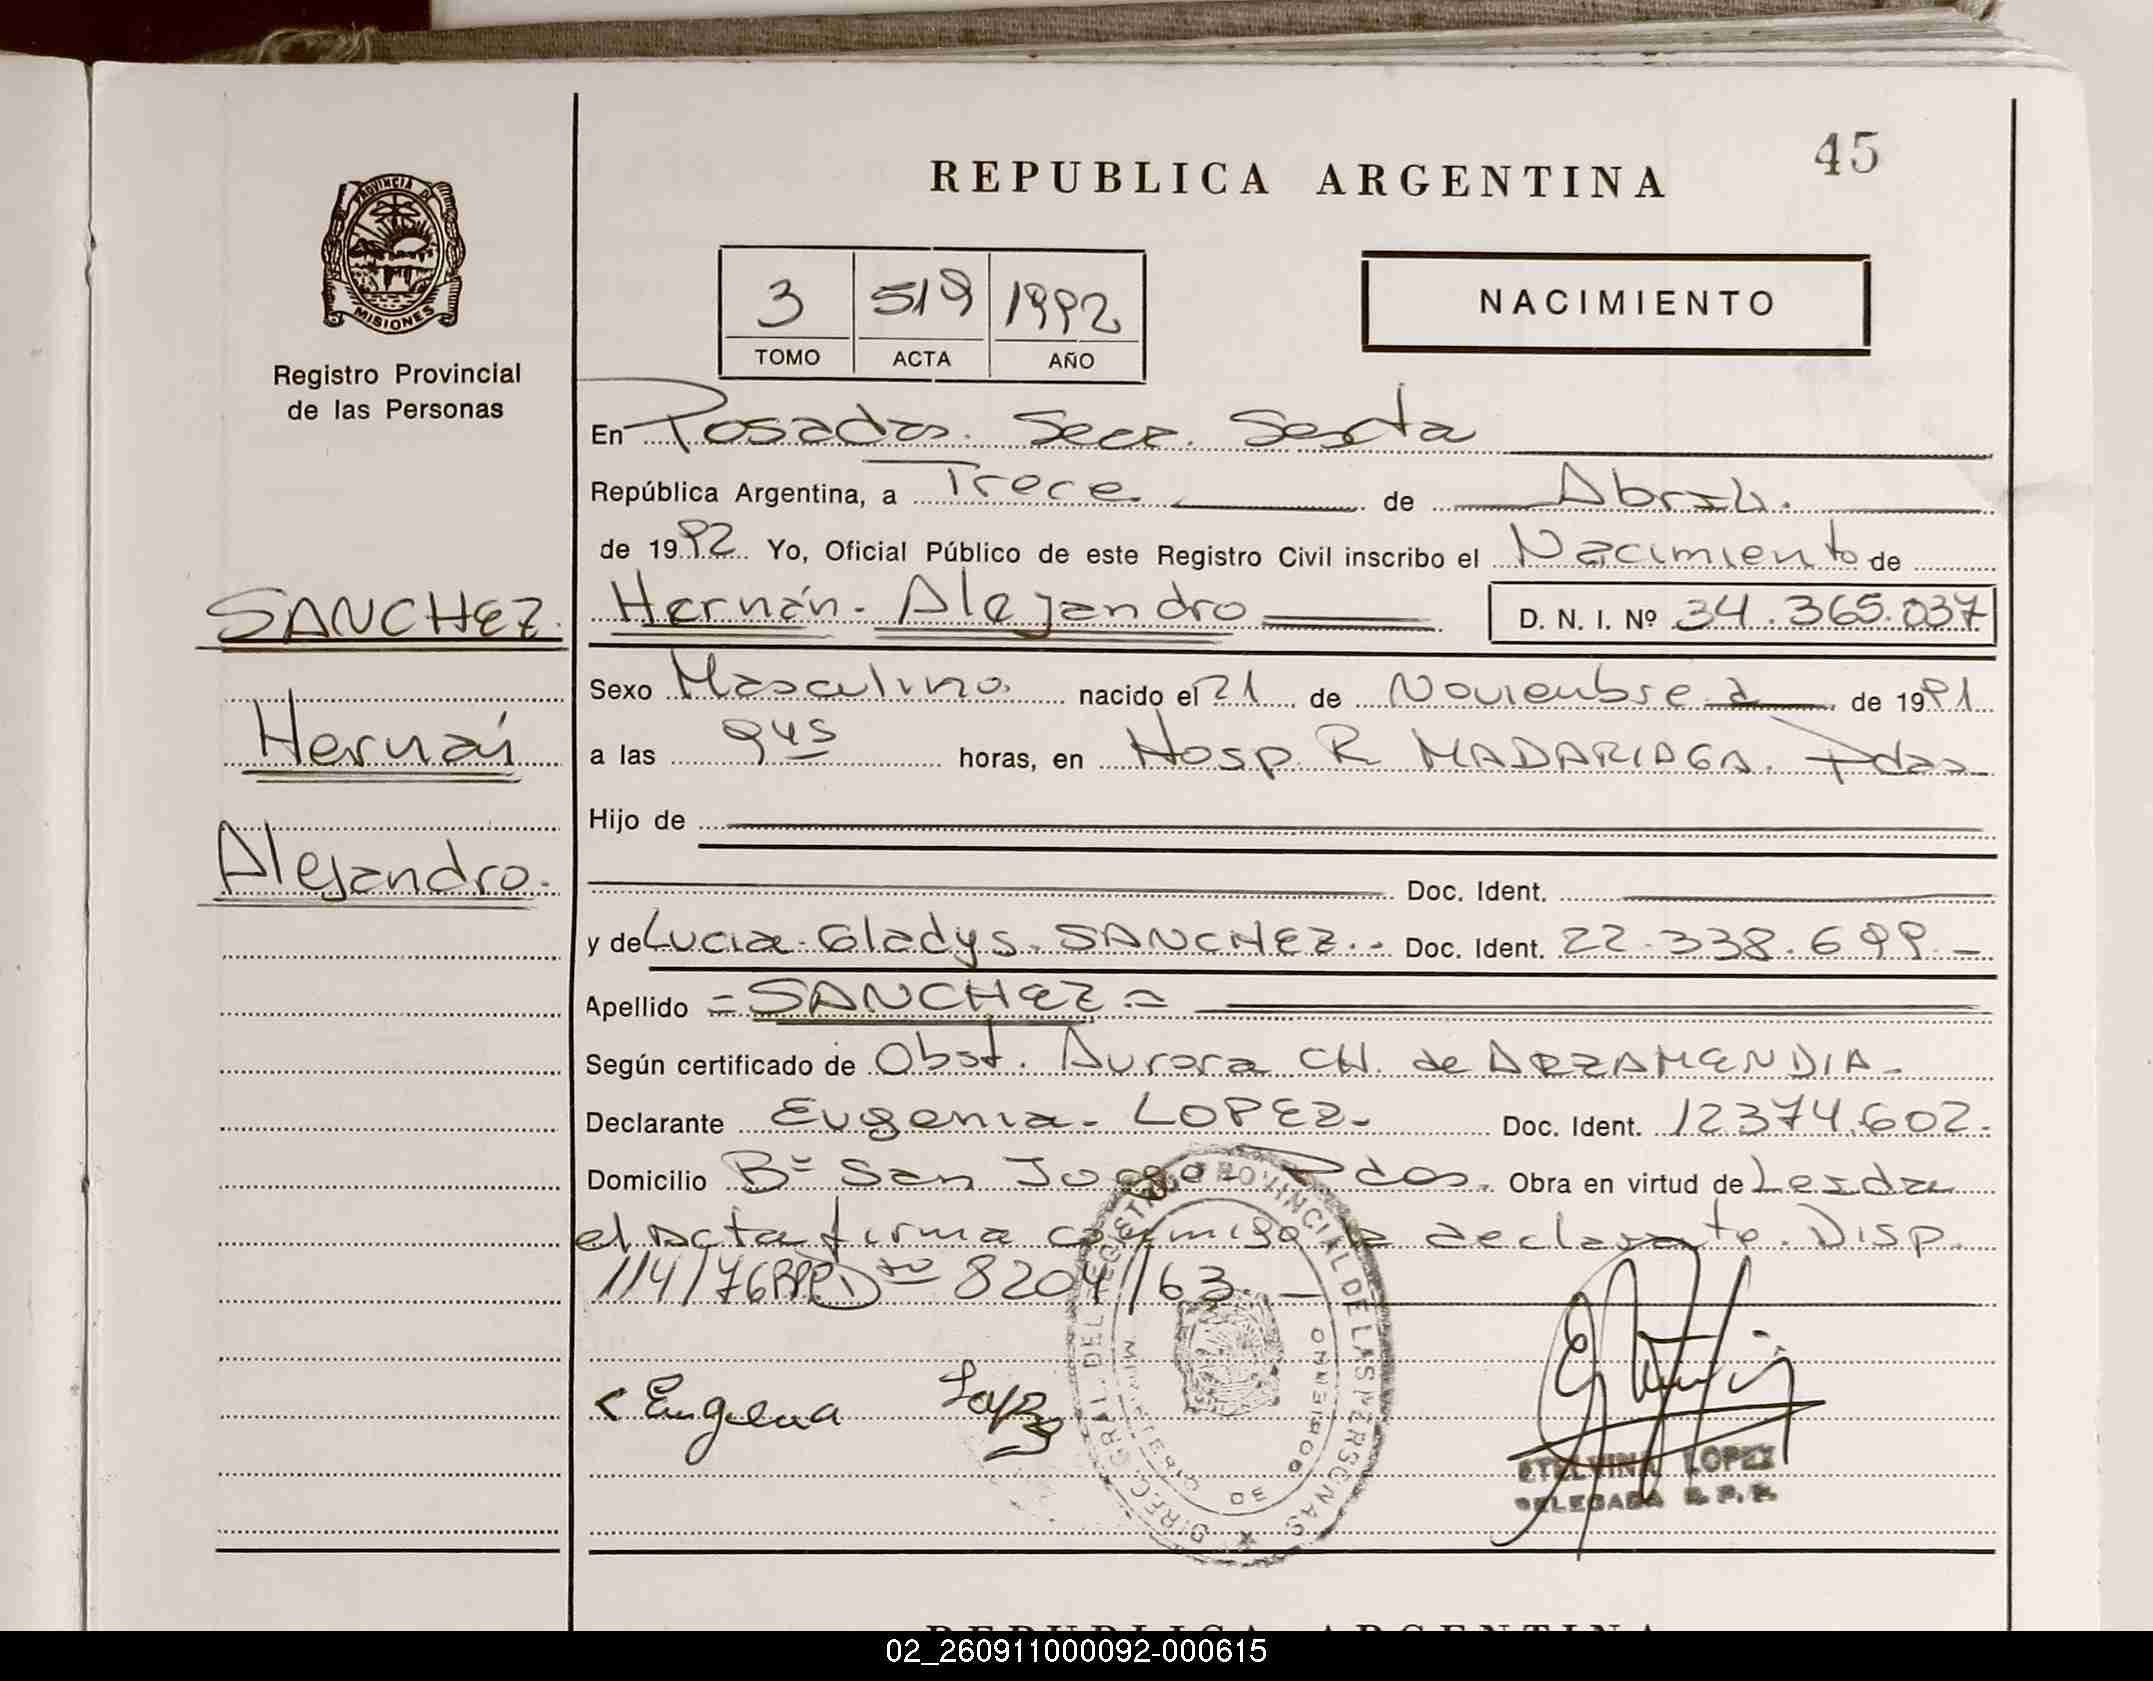 45
REPUBLICA ARGENTINA
PROVINCIA DE
MISIONES
Registro Provincial
de las Personas
3 519 1992
TOMO ACTA AÑO
NACIMIENTO
En Posadas. Secc. Sexta
República Argentina, a Trece de Abril.
de 1992 Yo, Oficial Público de este Registro Civil inscribo el Nacimiento de
SANCHEZ.
Hernán
Alejandro.
Hernán - Alejandro D. N. I. Nº 34.365.037
Sexo Masculino. nacido el 21 de Noviembre de 1991
a las 945 horas, en Hosp. R. MADARIAGA. Pdas
Hijo de
Doc. Ident.
y de Lucia Gladys. SANCHEZ.- Doc. Ident. 22.338.699.-
Apellido = SANCHEZ =
Según certificado de Obst. Aurora CH. de ARZAMENDIA-
Declarante Eugenia - LOPEZ- Doc. Ident. 12374.602-
Domicilio Bº San Jorge Pdas. Obra en virtud de Leida
el Acta firma conmigo la declarante. Disp.
114/76 RPP 8204/63.-
Eugenia Lopez
DIREC. GRAL. DEL REGISTRO PROVINCIAL DE LAS PERSONAS
MINISTERIO DE GOBIERNO
ETELVINA LOPEZ
DELEGADA R. P. P.
REPUBLICA ARGENTINA
02_260911000092-000615